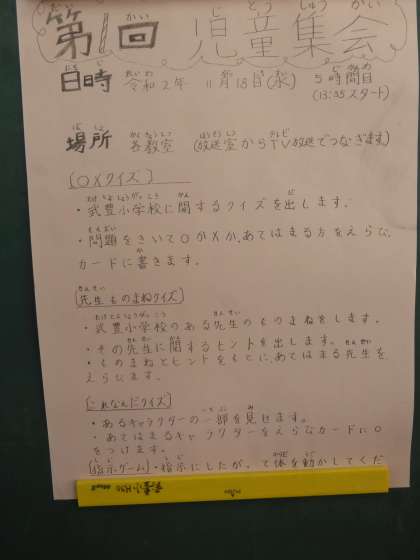 第1回 児童集会
日時 令和2年 11月18日(水) 5時間目
(13:35スタート)
場所 各教室 (放送室からTV放送でつなぎます)
〔○×クイズ〕
・武豊小学校に関するクイズを出します。
・問題をきいて○か×か、あてはまる方をえらび、
カードに書きます。
〔先生ものまねクイズ〕
・武豊小学校のある先生のものまねをします。
・その先生に関するヒントを出します。
・ものまねとヒントをもとに、あてはまる先生を
えらびます。
〔これなんだクイズ〕
・あるキャラクターの一部を見せます。
・あてはまるキャラクターをえらびカードに○
をつけます。
〔指示ゲーム〕・指示にしたがって体を動かしてくだ